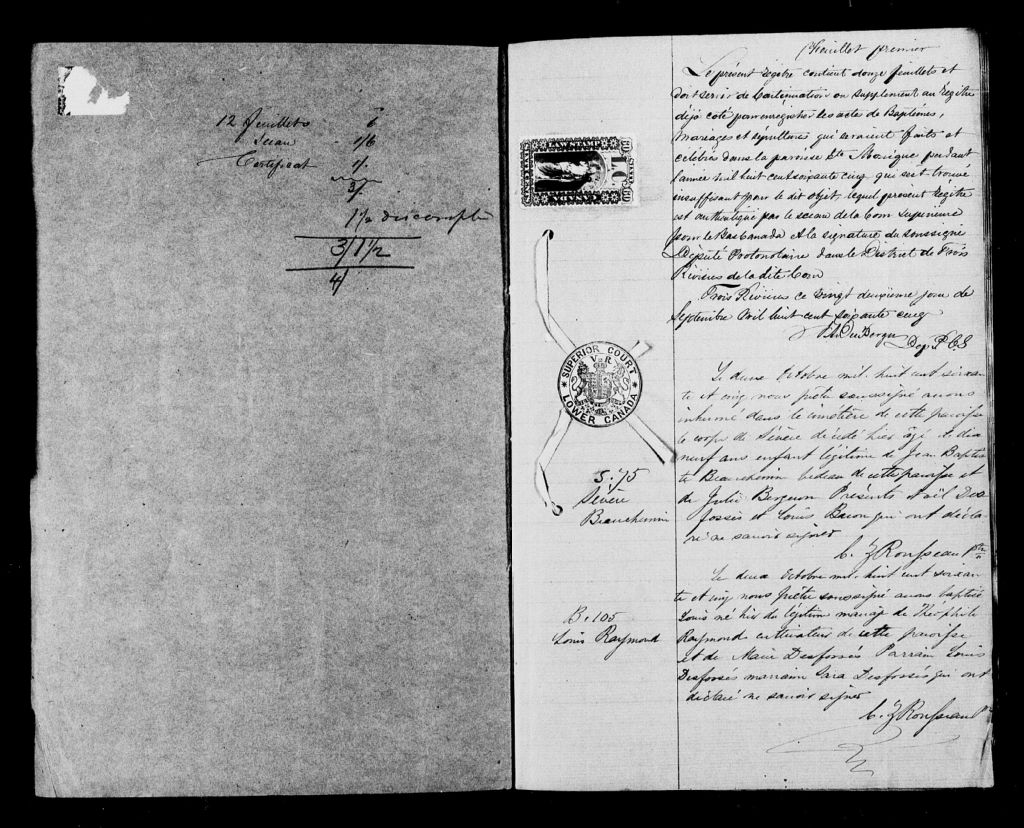 12 feuillets 6
Sceau - 1/6
Certificat 1/.
3/.
1½ d'escompte
3/1½
4/
feuillet premier
Le présent régitre contient douze feuillets et
doit servir de Continuation ou supplement au Régitre
déjà coté pour enregistrer les actes de Baptêmes,
Mariages et sépultures qui seraient faits et
célébrés dans la paroisse Ste Monique pendant
l'année mil huit cent soixante cinq qui sest trouvé
insuffisant pour le dit objet, lequel présent Régitre
est authentiqué par le sceau de la Cour Supérieure
pour le Bas Canada et la signature du soussigné
Député Protonotaire dans le District de Trois
Rivières de la dite Cour
Trois Rivières ce vingt deuxième jour de
Septembre Mil huit cent soixante cinq
Dep. P C S
LAW STAMP
CANADA
10
CENTS
SUPERIOR COURT
V R
LOWER CANADA
S. 75
Sévère
Beauchemin
Le deux Octobre mil huit cent soixan
te et cinq nous prêtre soussigné avons
inhumé dans le cimetière de cette paroisse
le corps de Sévère décédé hier âgé de dix
neuf ans enfant légitime de Jean Baptis
te Beauchemin bedeau de cette paroisse et
de Julie Bergeron Présents Noël Des
fossés et Louis Baron qui ont décla
ré ne savoir signer
C. Z. Rousseau Ptre
B. 105
Louis Raymond
Le deux Octobre mil huit cent soixan
te et cinq nous prêtre soussigné avons baptisé
Louis né hier du légitime mariage de Théophile
Raymond cultivateur de cette paroisse
et de Marie Desfossés Parrain Louis
Desfossés marraine Sara Desfossés qui ont
déclaré ne savoir signer
C. Z. Rousseau Ptre